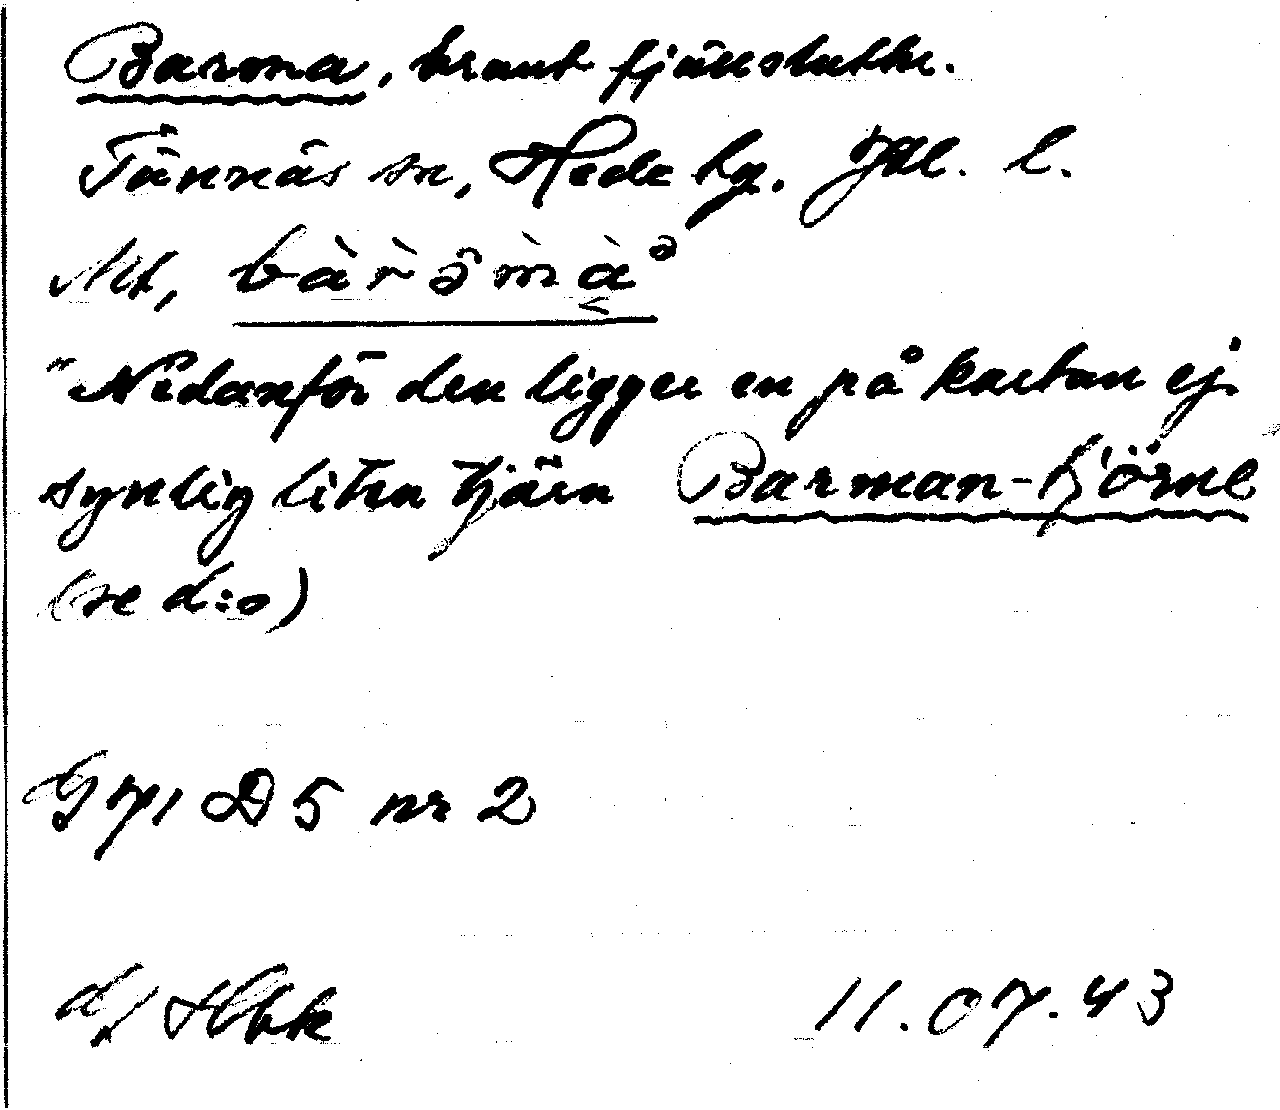 Barona, brant fjällslutte.
Tännäs sn, Hede tg. Jtl. l.
"Nedanför den ligger en på kartan ej
synlig liten tjärn Barman-tjörne
(se d:o)
G 71 D 5 nr 2
11.07.43